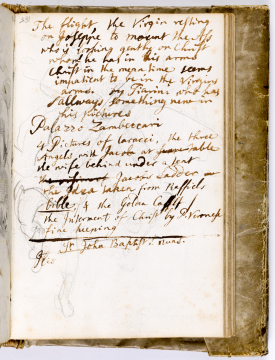 The flight, the Virgin resting
on Joseppe to mount the Ass
who is looking gently on Christ
whom he has in his arms
Christ in the meantime seems
impatient to be in the Virgins
arms. by Tiarini who has
allways something new in
his Pictures
Palazzo Zambeccari
4 Pictures of Caracci, the three
Angels with Jacob at table
the wife behind under a tent
Jacobs Ladder
the Idea taken from Raffaels
bible, & the Golden Calf
the Interment of Christ by
fine keeping
St. John Baptist